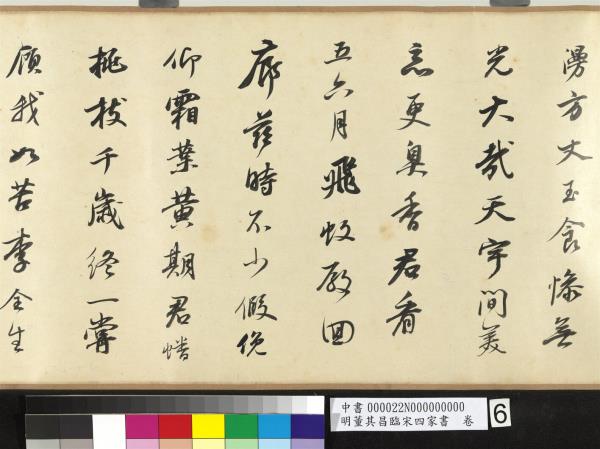 漫方丈玉食慘無
光大哉天宇間美
惡更臭香君看
五六月飛蚊殷回
廊茲時不少假俛
仰霜葉黃期君蟠
桃枝千歲終一嘗
顧我如苦李全生
中書 000022N000000000
明董其昌臨宋四家書 卷
6